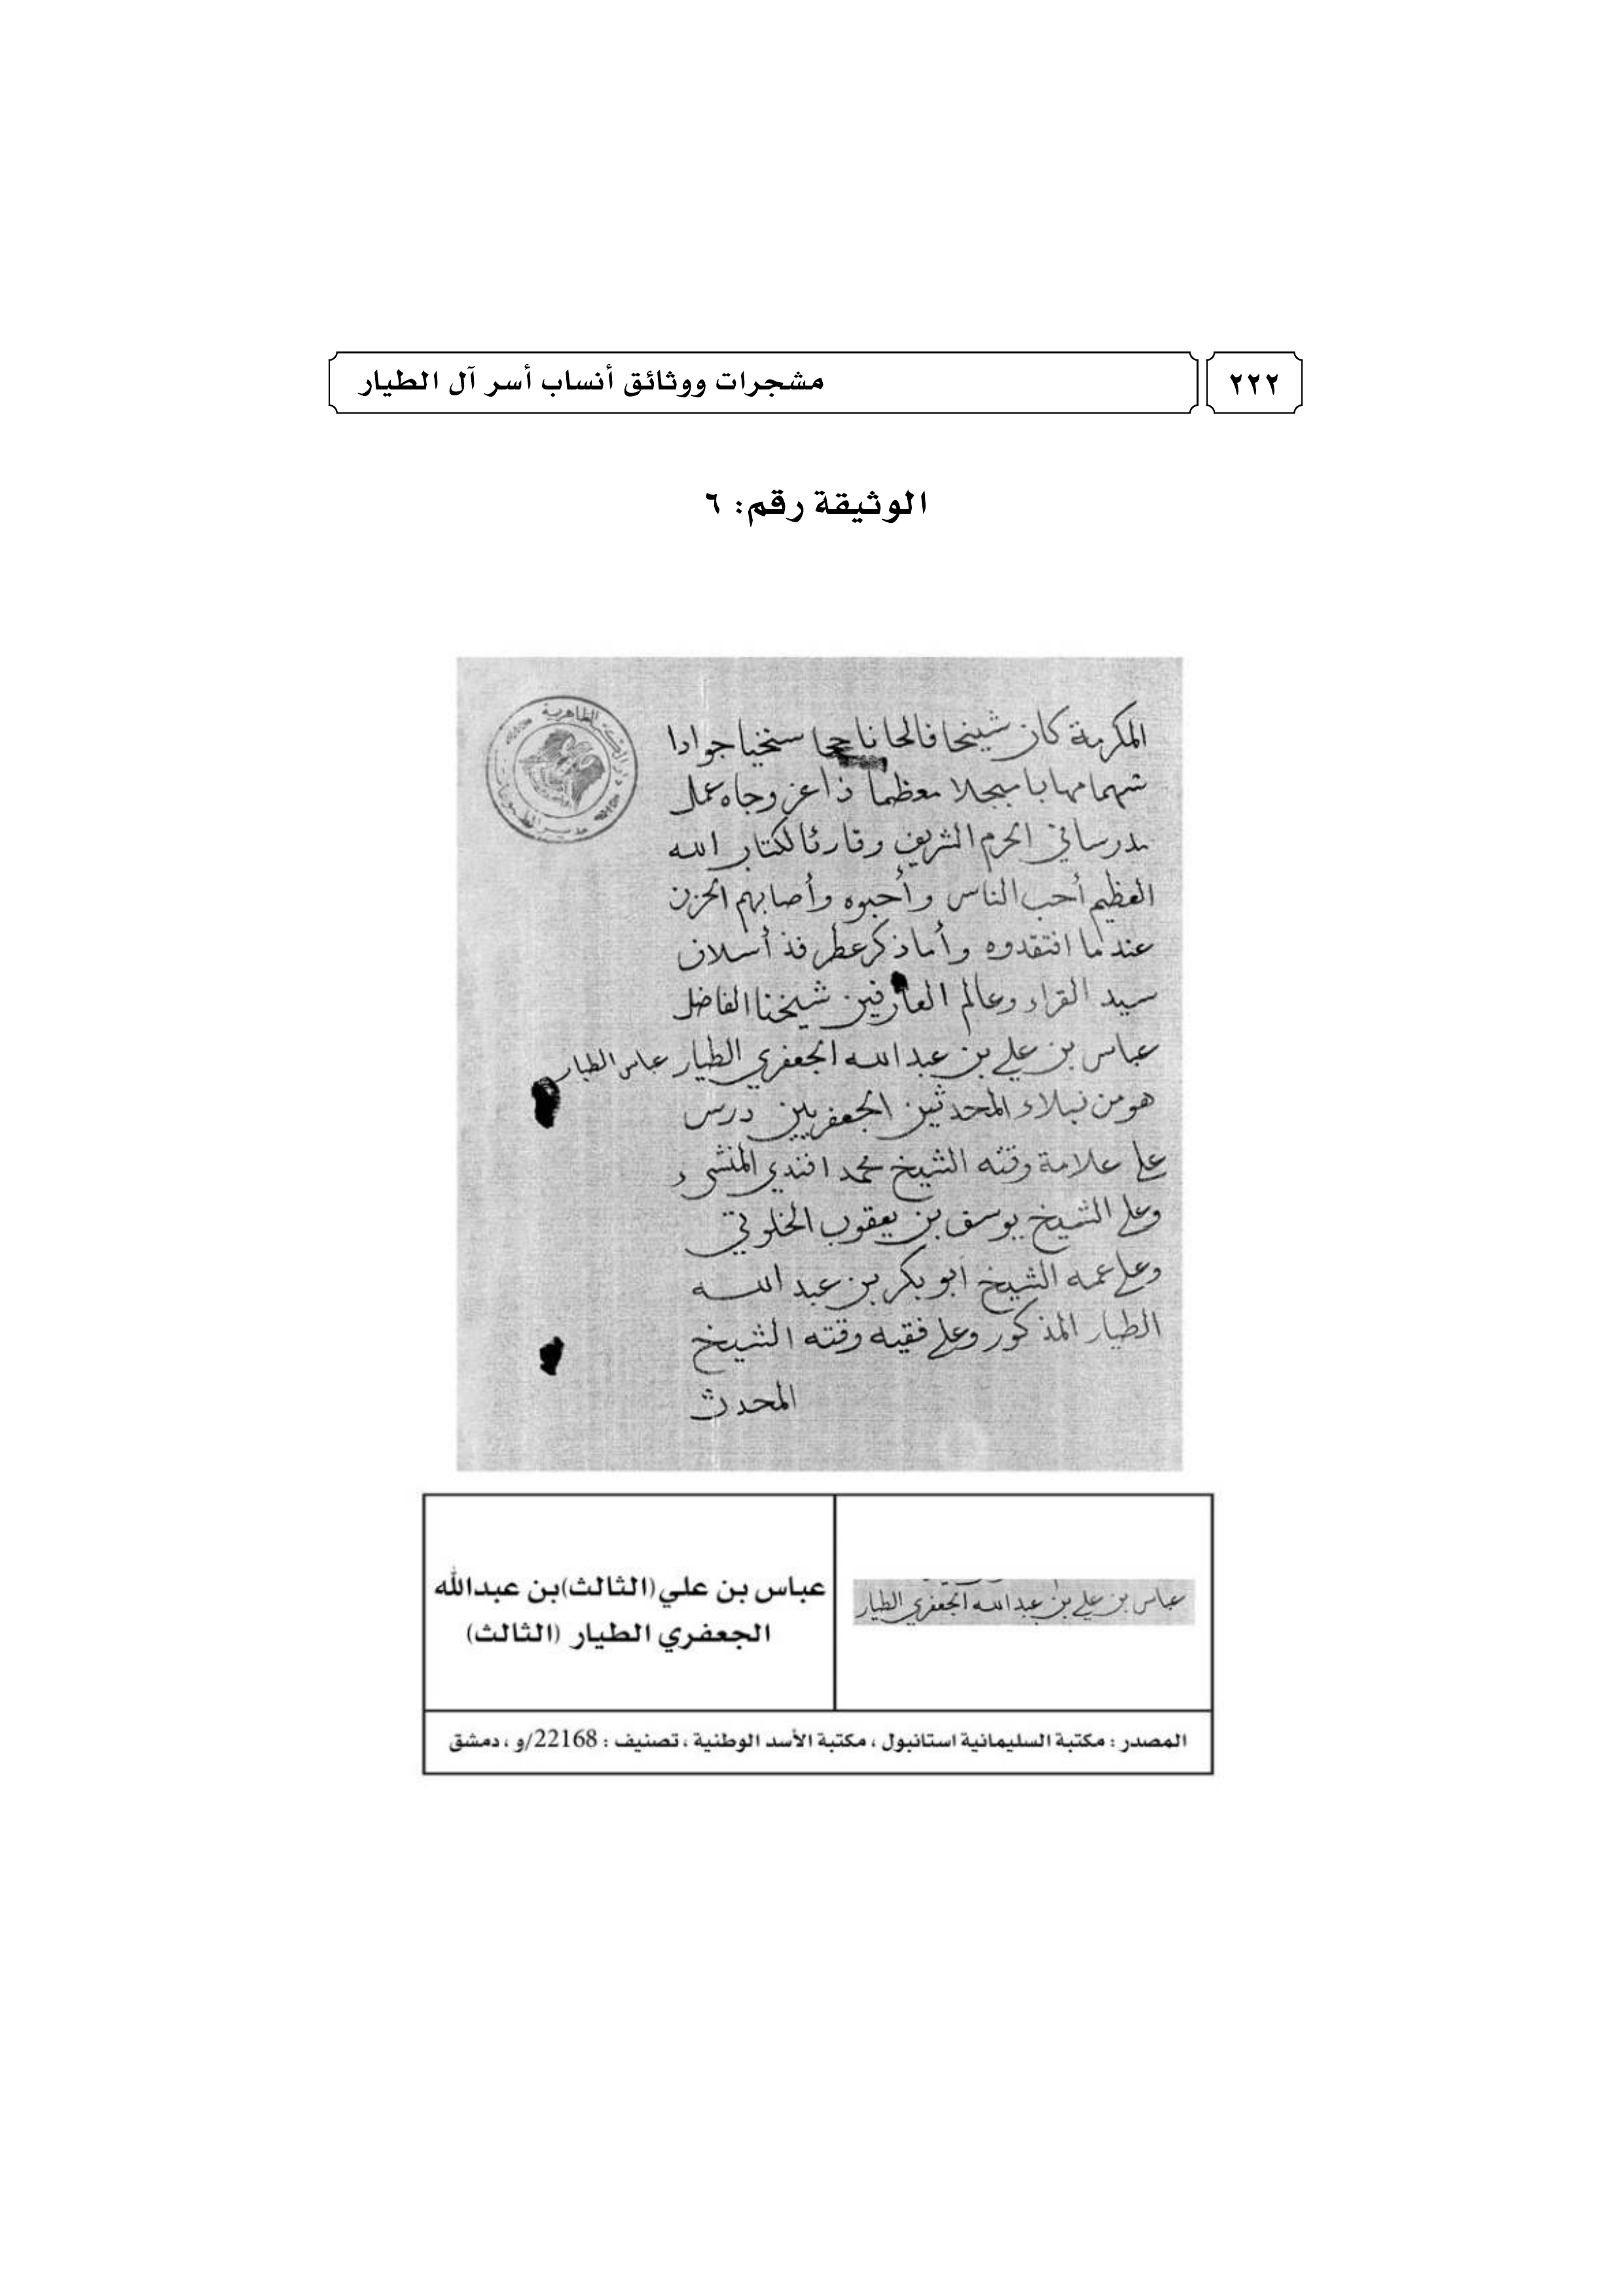 ٢٢٢
مشجرات ووثائق أنساب أسر آل الطيار
الوثيقة رقم: ٦
المكرمة كان شيخا فالحا ناجحا سخيا جوادا
شهما مهابا مبجلا معظما ذا عز وجاه عمل
مدرسا في الحرم الشريف وقارئا لكتاب الله
العظيم أحب الناس وأحبوه وأصابهم الحزن
عندما افتقدوه وأما ذكر عطر فذ أسلاف
سيد القراء وعالم العارفين شيخنا الفاضل
عباس بن علي بن عبد الله الجعفري الطيار عباس الطيار
هو من نبلاء المحدثين الجعفريين درس
على علامة وقته الشيخ محمد افندي المنشىء
وعلى الشيخ يوسف بن يعقوب الخلوتي
وعلى عمه الشيخ أبو بكر بن عبد الله
الطيار المذكور وعلى فقيه وقته الشيخ
المحدث
دار الكتب الظاهرية
عباس بن علي بن عبد الله الجعفري الطيار
عباس بن علي (الثالث) بن عبدالله
الجعفري الطيار (الثالث)
المصدر : مكتبة السليمانية استانبول ، مكتبة الأسد الوطنية ، تصنيف : 22168/و ، دمشق